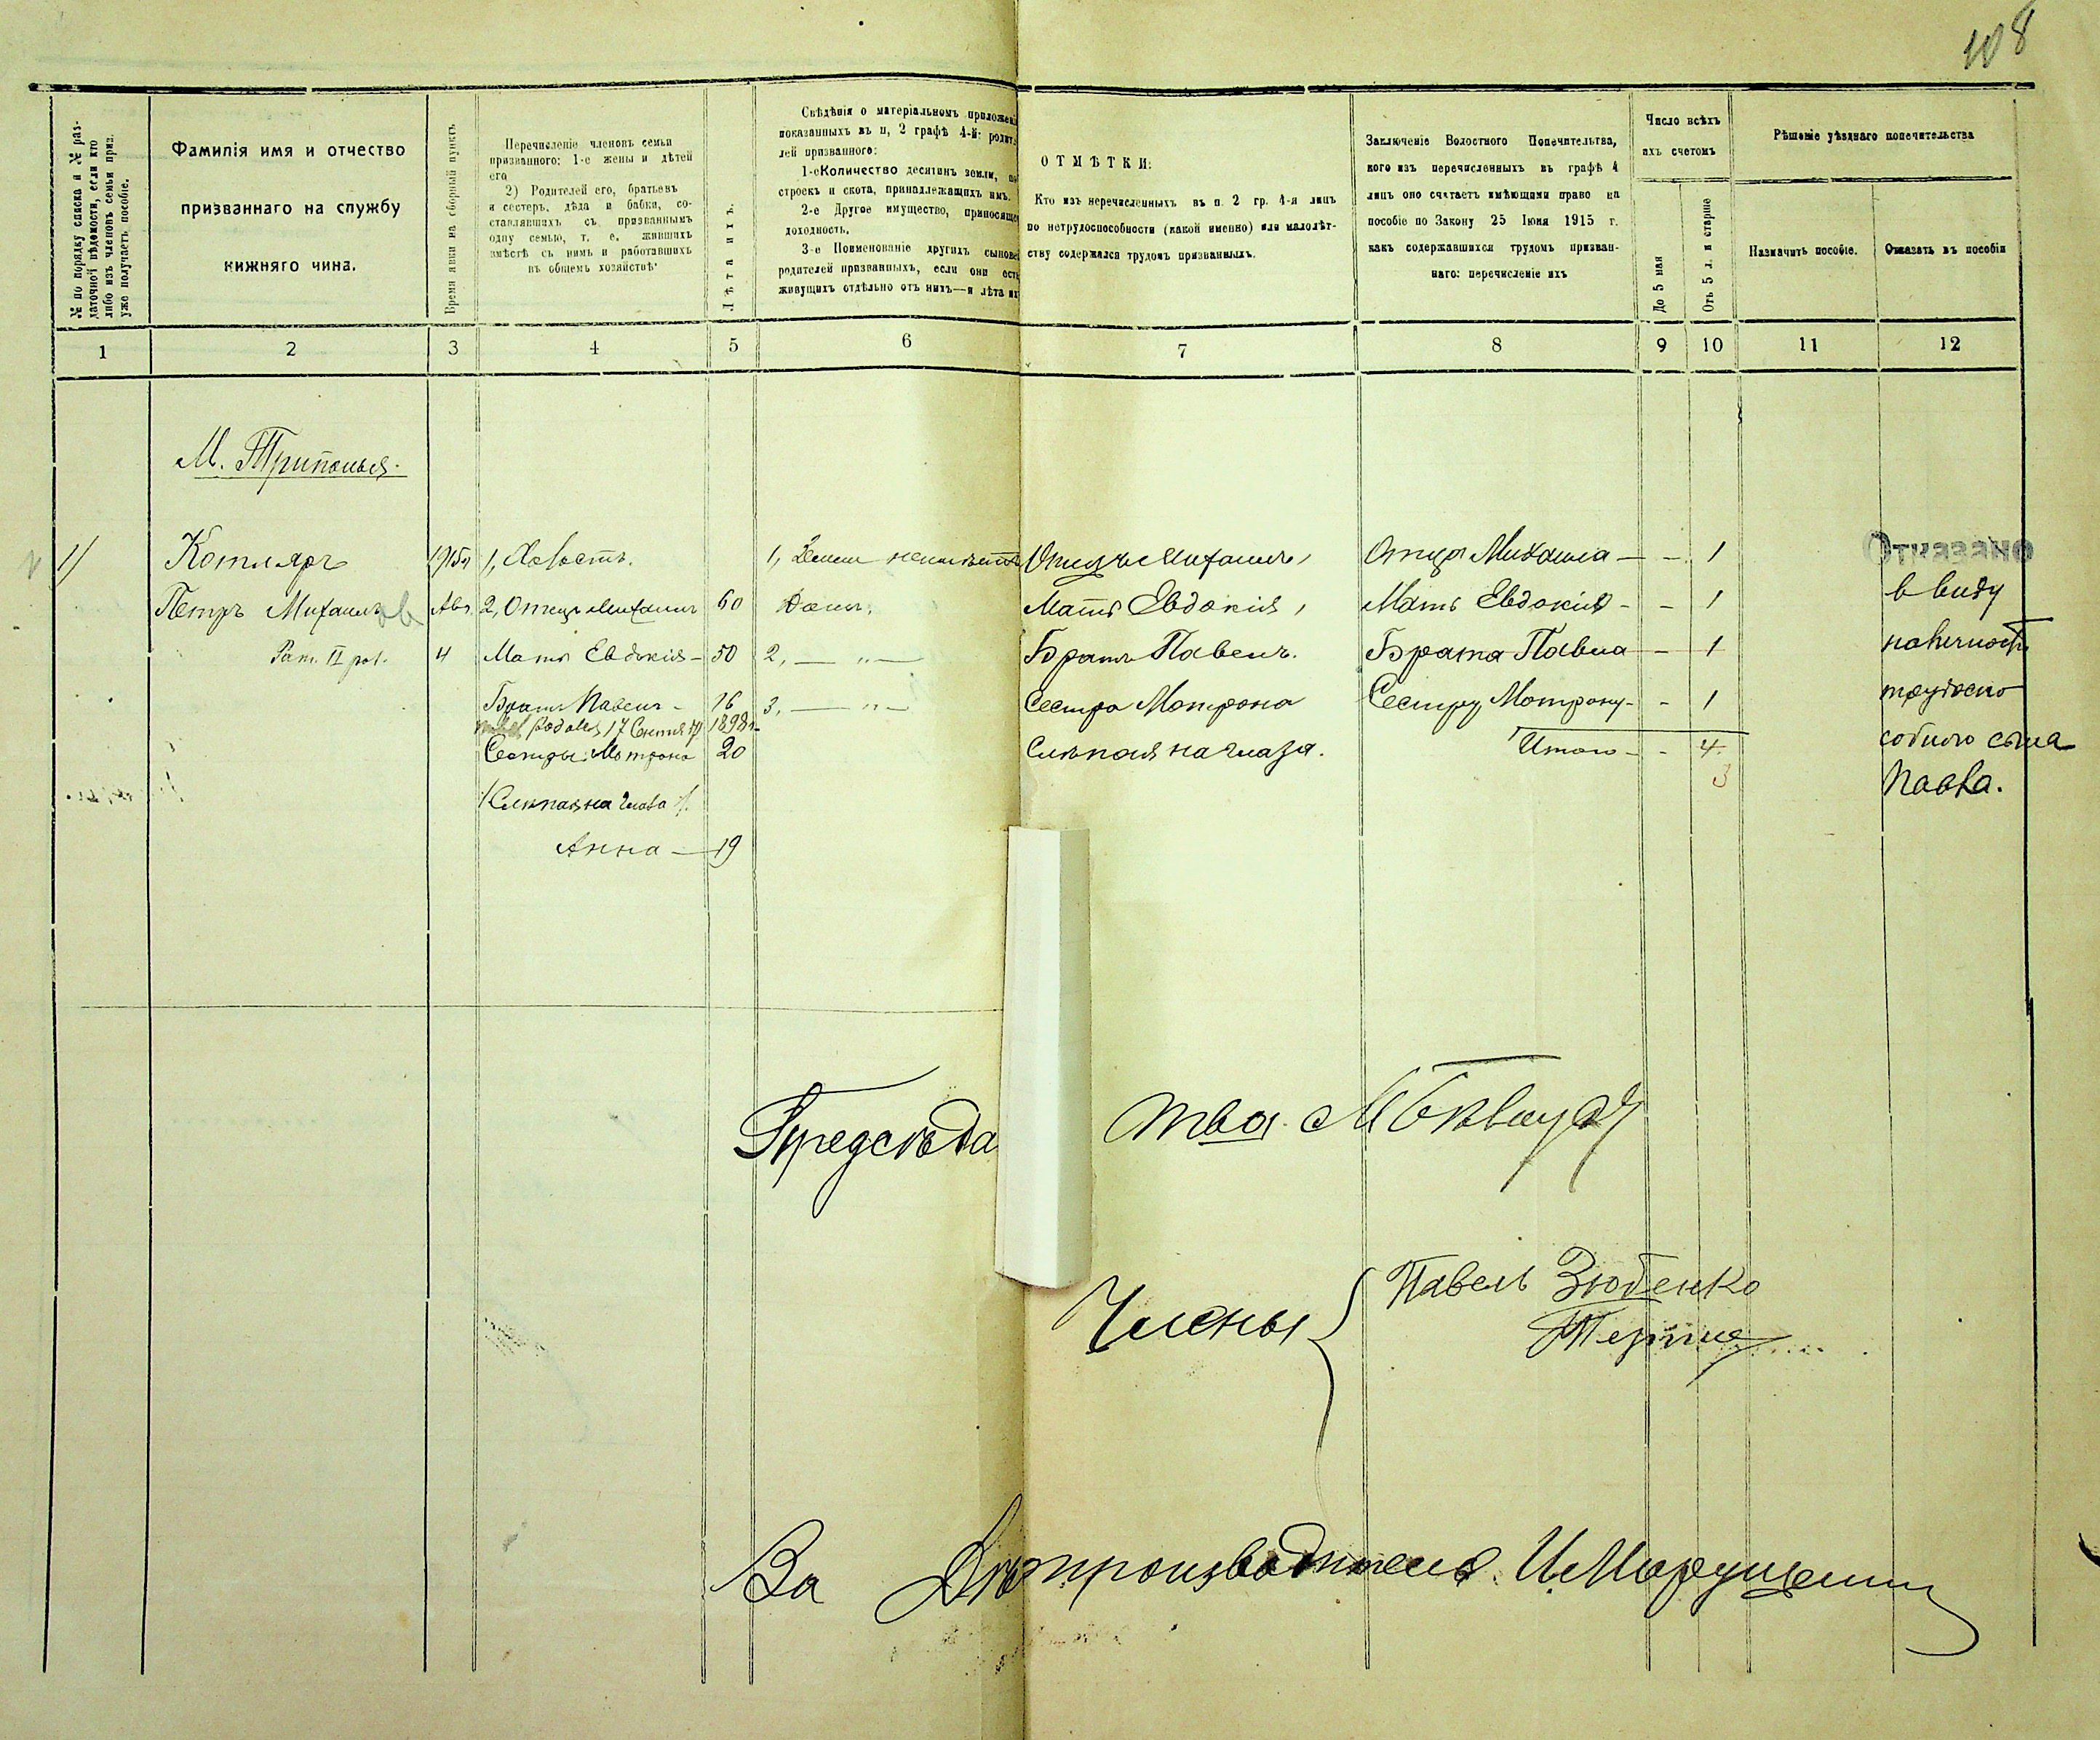 108
№ по порядку списка и № раз-
даточной вѣдомости, если кто
либо изъ членовъ семьи приз.
уже получаетъ пособіе.
Фамилія имя и отчество
призваннаго на службу
нижняго чина.
Время явки на сборный пунктъ
Перечисленіе членовъ семьи
призваннаго: 1-е жены и дѣтей
его
2) Родителей его, братьевъ
и сестеръ, дѣда и бабки, со-
ставлявшихъ съ призваннымъ
одну семью, т. е. жившихъ
вмѣстѣ съ нимъ и работавшихъ
въ общемъ хозяйствѣ
Лѣта ихъ.
Свѣдѣнія о матеріальномъ приложен
показанныхъ въ п, 2 графѣ 4-й: родит
лей призваннаго:
1-еКоличество десятинъ земли, по
строекъ и скота, принадлежащихъ имъ.
2-е Другое имущество, приносящее
доходность.
3-е Поименованіе другихъ сынове
родителей призванныхъ, если они есть
живущихъ отдѣльно отъ нихъ—и лѣта их
ОТМѢТКИ:
Кто изъ перечисленныхъ въ п. 2 гр. 4-я лицъ
по нетрудоспособности (какой именно) или малолѣт-
ству содержался трудомъ призванныхъ.
Заключеніе Волостного Попечительства,
кого изъ перечисленныхъ въ графѣ 4
лицъ оно считаетъ имѣющими право на
пособіе по Закону 25 Іюня 1915 г.
какъ содержавшихся трудомъ призван-
наго: перечисленіе ихъ
Число всѣхъ
ихъ счетомъ
До 5 мая
Отъ 5 л. и старше
Рѣшеніе уѣзднаго попечительства
Назначить пособіе.
Отказать въ пособіи
1 2 3 4 5 6 7 8 9 10 11 12
М. Триполья.
1/ Котляръ 1915г 1, Холостъ. 1, Земли неимѣетъ Отецъ Михаилъ, Отца Михаила — - 1 Отказано
Петръ Михаиловъ Авг. 2, Отецъ Михаилъ 60 Домъ, Мать Евдокія, Мать Евдокію - - 1 в виду
Рат. II раз. 4 Мать Евдокія - 50 2, — „ — Братъ Павелъ. Брата Павла - 1 наличности
Братъ Павелъ - 16 3, — „ — Сестра Мотрона Сестру Мотрону - - 1 трудоспо
родился 17 Сентя 1898г.
Сестры: Мотрона 20 Слѣпая на глаза. Итого - - 4. собного сына
3 Павла.
/Слѣпая на глаза/.
Анна — 19
Предсѣда тва
Члены { Павелъ Зюбенко
За Дѣлопроизводителя